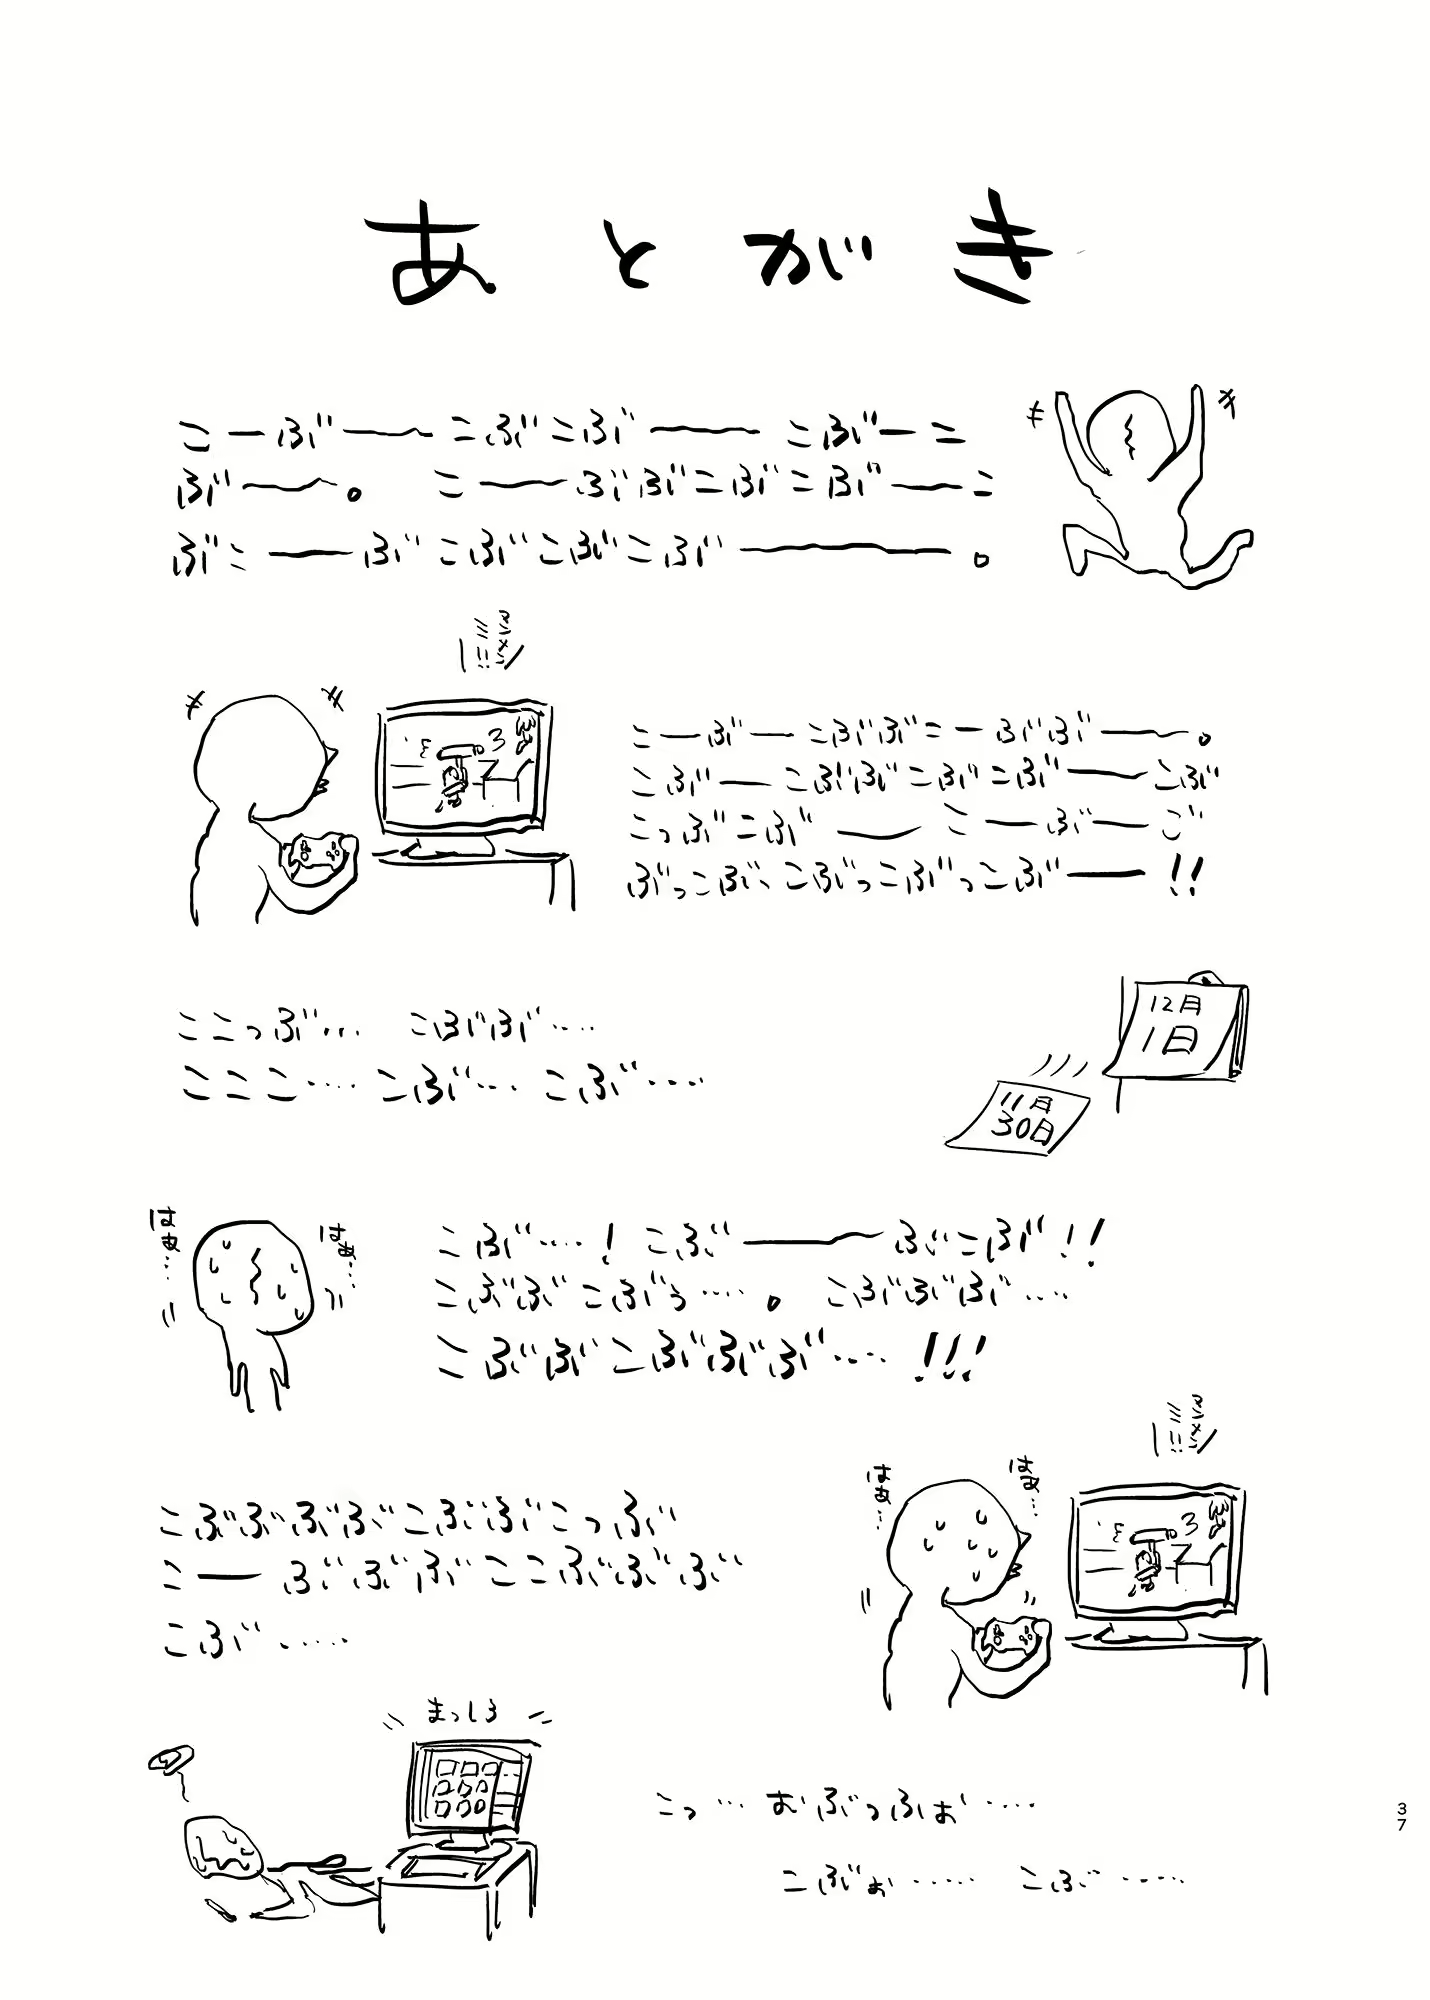 あとがき
こーぶーーこぶこぶーーこぶーこ
ぶーー。 こーーぶぶこぶこぶーーこ
ぶこーーぶこぶこぶこぶーーーー。
キ
キ
こーぶーこぶぶこーぶぶーー。
こぶーこぶぶこぶこぶーーこぶ
こっぶこぶーー こーぶーご
ぶっこぶ、こぶっこぶっこぶーー!!
ここっぶ… こぶぶ…
こここ…こぶ…こぶ…
12月
1日
11月
30日
はぁ…
はぁ…
こぶ…! こぶーーーぶこぶ!!
こぶぶこぶぅ…。 こぶぶぶ…
こぶぶこぶぶぶ…!!!
はぁ…
はぁ…
こぶぶぶぶこぶぶこっぶ
こーぶぶぶここぶぶぶ
こぶ……
まっしろ
こっ… おぶっふぉ…
こぶぉ…… こぶ……
37